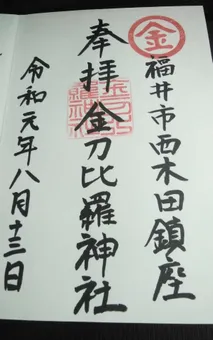 金
福井市西木田鎮座
奉拝 金刀比羅神社
令和元年八月十三日